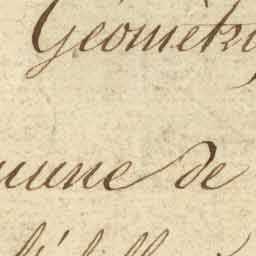 Géomètr
mune de